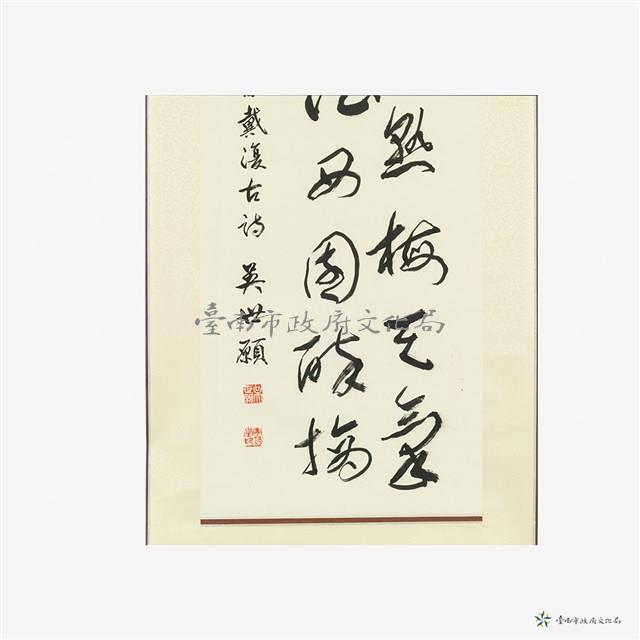 熟梅天氣
酒西園醉摘
戴復古詩 吳世願
臺南市政府文化局
臺南市政府文化局